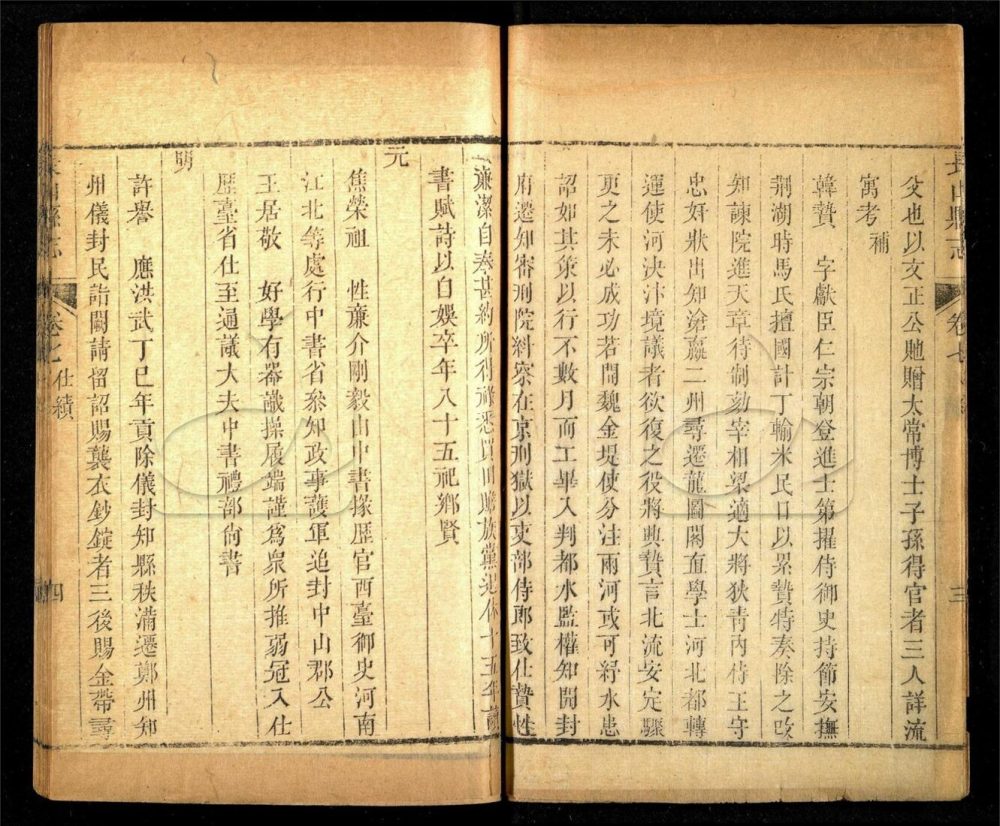 長山縣志
卷七
三
父也以文正公貤贈太常博士子孫得官者三人詳流
寓考補
韓贄 字獻臣仁宗朝登進士第擢侍御史持節安撫
荆湖時馬氏擅國計丁輸米民口以累贄特奏除之改
知諫院進天章待制劾宰相梁適大將狄青內侍王守
忠奸狀出知滄瀛二州尋遷龍圖閣直學士河北都轉
運使河決汴境議者欲復之役將興贄言北流安定驟
更之未必成功若開魏金堤使分注兩河或可紓水患
詔如其策以行不數月而工畢入判都水監權知開封
府遷知審刑院糾察在京刑獄以吏部侍郎致仕贄性
廉潔自奉甚約所得祿悉以田贍族黨退休十五年讀
書賦詩以自娛卒年八十五祀鄉賢
元
焦榮祖 性廉介剛毅由中書掾歷官西臺御史河南
江北等處行中書省叅知政事護軍追封中山郡公
王居敬 好學有器識操履端謹爲衆所推弱冠入仕
歷臺省仕至通議大夫中書禮部尙書
明
許譽 應洪武丁巳年貢除儀封知縣秩滿遷鄭州知
州儀封民詣闕請留詔賜襲衣鈔錠者三後賜金帶尋
長山縣志
卷七 仕績
四